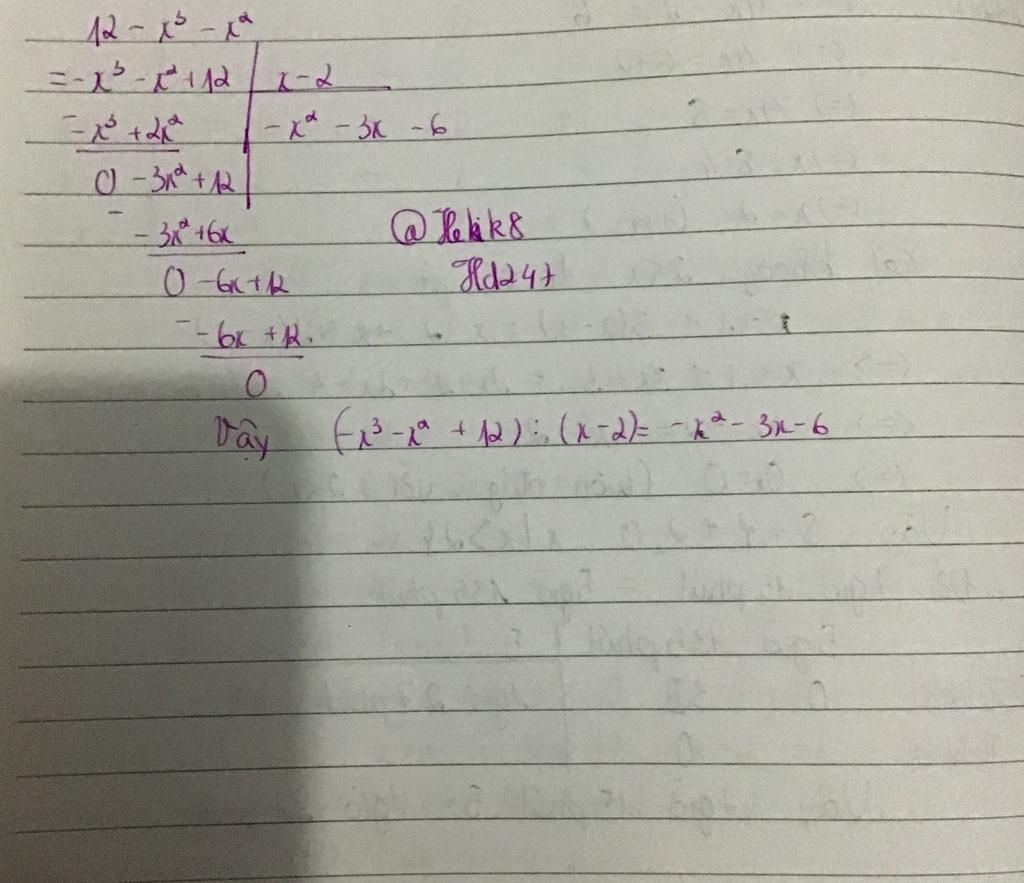 12 - x³ - x²
= -x³ - x² + 12 | x - 2
- -x³ + 2x² | -x² - 3x - 6
0 - 3x² + 12
- -3x² + 6x
@
0 - 6x + 12
- -6x + 12
0
Vậy (-x³ - x² + 12) : (x - 2) = -x² - 3x - 6